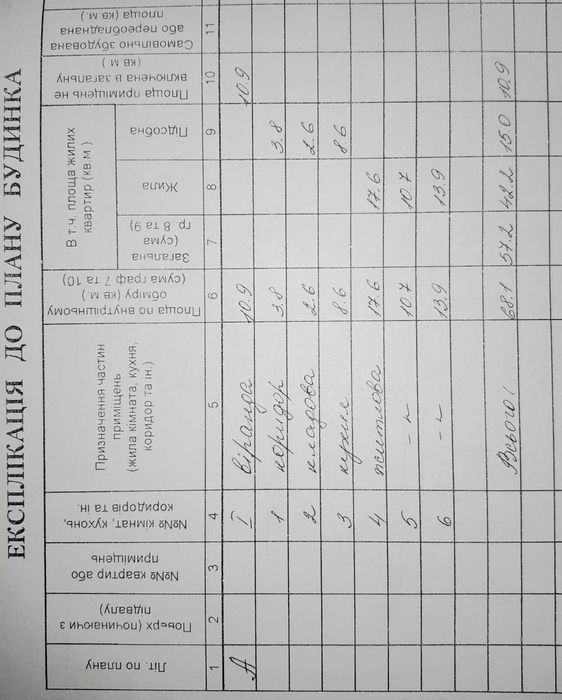 ЕКСПЛІКАЦІЯ ДО ПЛАНУ БУДИНКА
Літ. по плану
Поверх (починаючи з підвалу)
№№ квартир або приміщень
№№ кімнат, кухонь, коридорів та ін.
Призначення частин приміщень (жила кімната, кухня, коридор та ін.)
Площа по внутрішньому обміру (кв. м.) (сума граф 7 та 10)
В т.ч. площа жилих квартир (кв.м.)
Загальна (сума гр. 8 та 9)
Жила
Підсобна
Площа приміщень не включена в загальну (кв м )
Самовільно збудована або переобладнана площа (кв м )
1 2 3 4 5 6 7 8 9 10 11
А I віранда 10.9 10.9
1 коридор 3.8 3.8
2 кладова 2.6 2.6
3 кухня 8.6 8.6
4 житлова 17.6 17.6
5 -"- 10.7 10.7
6 -"- 13.9 13.9
Всього: 68.1 57.2 42.2 15.0 10.9